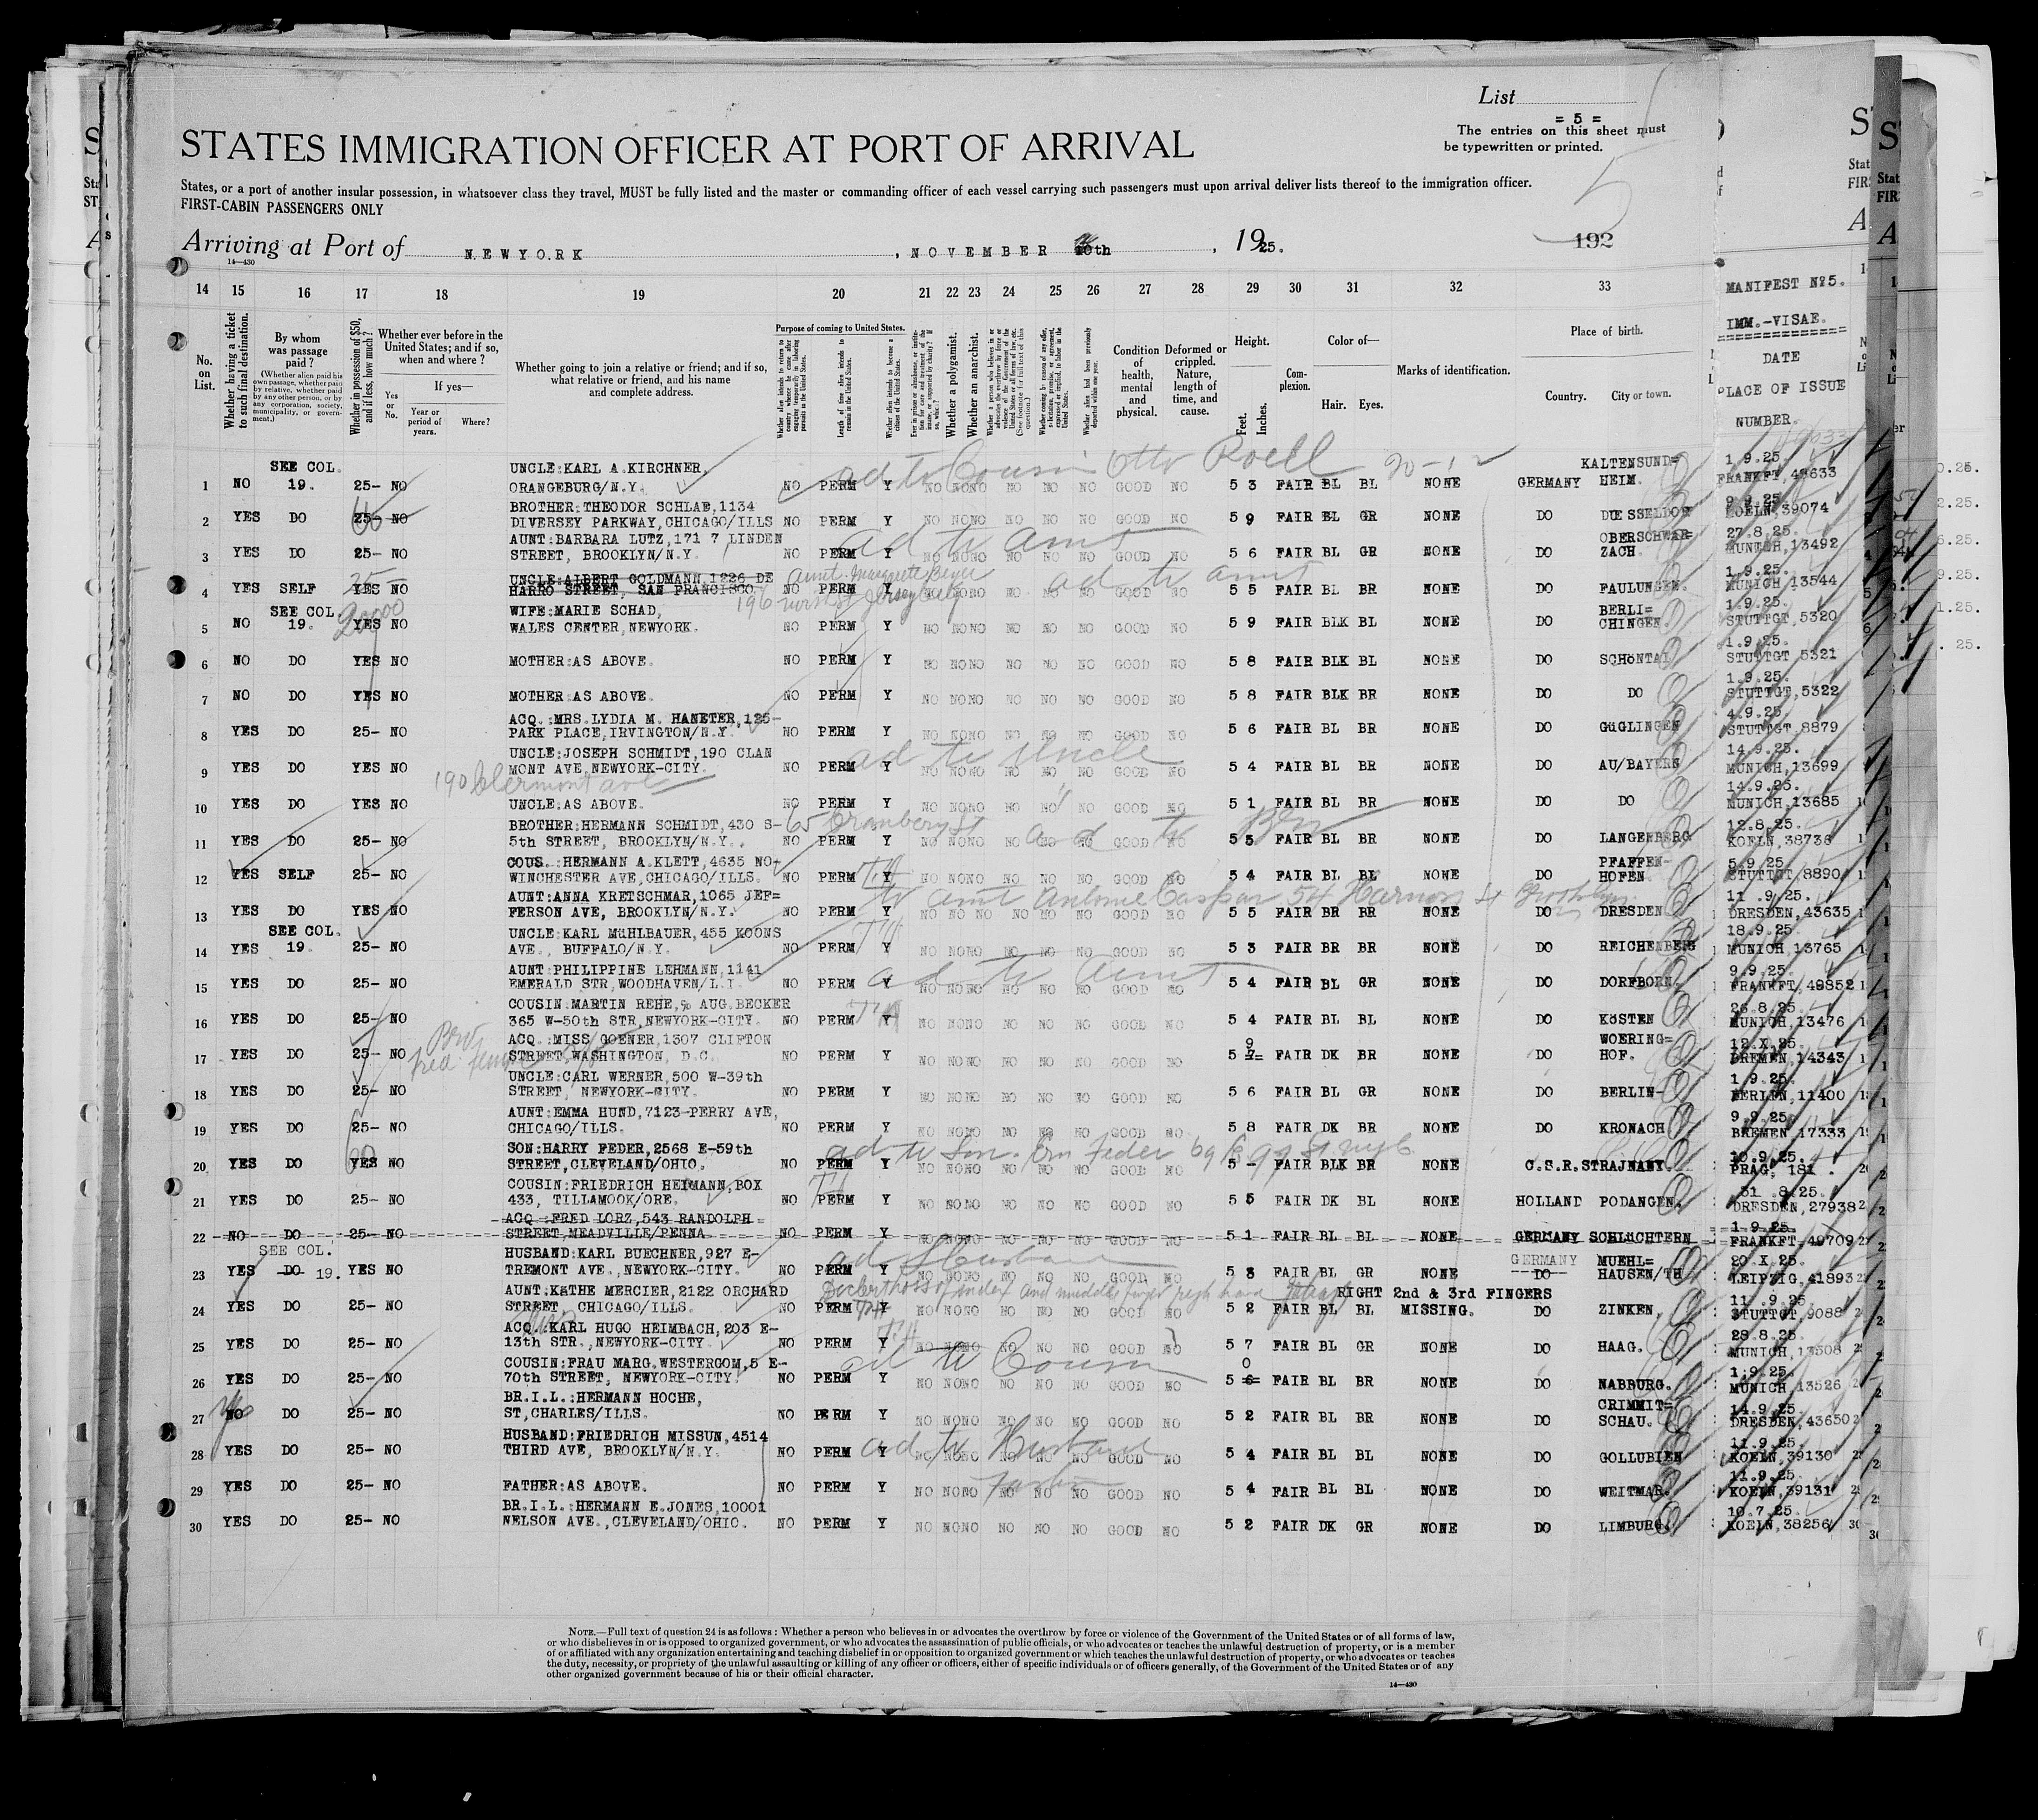 List
= 5 =
The entries on this sheet must
be typewritten or printed.
STATES IMMIGRATION OFFICER AT PORT OF ARRIVAL
States, or a port of another insular possession, in whatsoever class they travel, MUST be fully listed and the master or commanding officer of each vessel carrying such passengers must upon arrival deliver lists thereof to the immigration officer.
FIRST-CABIN PASSENGERS ONLY
5
Arriving at Port of NEWYORK, NOVEMBER 10th, 1925. 192
14—430
14 15 16 17 18 19 20 21 22 23 24 25 26 27 28 29 30 31 32 33
No. on List.
Whether having a ticket to such final destination.
By whom was passage paid?
(Whether alien paid his own passage, whether paid by relative, whether paid by any other person, or by any corporation, society, municipality, or government.)
Whether in possession of $50, and if less, how much?
Whether ever before in the United States; and if so, when and where?
Yes or No.
If yes—
Year or period of years.
Where?
Whether going to join a relative or friend; and if so, what relative or friend, and his name and complete address.
Purpose of coming to United States.
Whether alien intends to return to country whence he came after engaging temporarily in laboring pursuits in the United States.
Length of time alien intends to remain in the United States.
Whether alien intends to become a citizen of the United States.
Whether a polygamist.
Whether an anarchist.
Condition of health, mental and physical.
Deformed or crippled. Nature, length of time, and cause.
Height.
Feet. Inches.
Complexion.
Color of—
Hair. Eyes.
Marks of identification.
Place of birth.
Country. City or town.
MANIFEST Nº5.
IMM.-VISAE.
DATE
PLACE OF ISSUE
NUMBER.
ad to Cousin Otto Roell
SEE COL. UNCLE:KARL A.KIRCHNER, KALTENSUND= 1.9.25.
1 NO 19. 25- NO ORANGEBURG/N.Y. NO PERM Y NO NO NO NO NO NO GOOD NO 5 3 FAIR BL BL NONE GERMANY HEIM. FRANKFT,49633
BROTHER:THEODOR SCHLAE,1134 9.9.25.
2 YES DO 25- NO DIVERSEY PARKWAY,CHICAGO/ILLS NO PERM Y NO NO NO NO NO NO GOOD NO 5 9 FAIR BL GR NONE DO DUESSELDOR KOELN,39074
AUNT:BARBARA LUTZ,171 7 LINDEN ad to aunt OBERSCHWAR= 27.8.25.
3 YES DO 25- NO STREET, BROOKLYN/N.Y. NO PERM Y NO NO NO NO NO NO GOOD NO 5 6 FAIR BL GR NONE DO ZACH. MUNICH,13492
UNCLE:ALBERT GOLDMANN,1226 DE ad to aunt 1.9.25.
4 YES SELF YES NO HARRO STREET, SAN FRANCISCO. NO PERM Y NO NO NO NO NO NO GOOD NO 5 5 FAIR BL BR NONE DO PAULUNZEN. MUNICH 13544
SEE COL. WIFE:MARIE SCHAD, BERLI= 1.9.25.
5 NO 19. YES NO WALES CENTER,NEWYORK. NO PERM Y NO NO NO NO NO NO GOOD NO 5 9 FAIR BLK BL NONE DO CHINGEN. STUTTGT,5320
1.9.25.
6 NO DO YES NO MOTHER:AS ABOVE. NO PERM Y NO NO NO NO NO NO GOOD NO 5 8 FAIR BLK BL NONE DO SCHÖNTAL STUTTGT 5321
1.9.25.
7 NO DO YES NO MOTHER:AS ABOVE. NO PERM Y NO NO NO NO NO NO GOOD NO 5 8 FAIR BLK BR NONE DO DO STUTTGT,5322
ACQ.:MRS.LYDIA M. HANETER,125- 4.9.25
8 YES DO 25- NO PARK PLACE,IRVINGTON/N.Y. NO PERM Y NO NO NO NO NO NO GOOD NO 5 6 FAIR BL BR NONE DO GüGLINGEN STUTTGT,8879
UNCLE:JOSEPH SCHMIDT,190 CLAN ad to uncle 14.9.25.
9 YES DO YES NO MONT AVE,NEWYORK-CITY. NO PERM Y NO NO NO NO NO NO GOOD NO 5 4 FAIR BL BR NONE DO AU/BAYERN MUNICH,13699
190 Clermont ave 14.9.25.
10 YES DO YES NO UNCLE:AS ABOVE. NO PERM Y NO NO NO NO NO NO GOOD NO 5 1 FAIR BL BR NONE DO DO MUNICH,13685
BROTHER:HERMANN SCHMIDT,430 S- 65 Cranberry St ad to Bro 12.8.25.
11 YES DO 25- NO 5th STREET, BROOKLYN/N.Y. NO PERM Y NO NO NO NO NO NO GOOD NO 5 5 FAIR BL BR NONE DO LANGENBERG KOELN,38736
COUS.:HERMANN A.KLETT,4635 NO- PFAFFEN- 5.9.25
12 YES SELF 25- NO WINCHESTER AVE,CHICAGO/ILLS. NO PERM Y NO NO NO NO NO NO GOOD NO 5 4 FAIR BL BL NONE DO HOFEN. STUTTGT,8890
AUNT:ANNA KRETSCHMAR,1065 JEF= to aunt Caspar 54 St Brooklyn 11 .9.25
13 YES DO YES NO FERSON AVE, BROOKLYN/N.Y. NO PERM Y NO NO NO NO NO NO GOOD NO 5 5 FAIR BR BR NONE DO DRESDEN DRESDEN,43635
SEE COL. UNCLE:KARL MüHLBAUER,455 KOONS 18.9.25.
14 YES 19. 25- NO AVE., BUFFALO/N.Y. NO PERM Y NO NO NO NO NO NO GOOD NO 5 3 FAIR BR BR NONE DO REICHENBERG MUNICH 13765
AUNT:PHILIPPINE LEHMANN,1141 ad to aunt 9.9.25.
15 YES DO 25- NO EMERALD STR,WOODHAVEN/L.I. NO PERM Y NO NO NO NO NO NO GOOD NO 5 4 FAIR BL GR NONE DO DORFBORN. FRANKFT,49852
COUSIN:MARTIN REHE,% AUG.BECKER 26.8.25.
16 YES DO 25- NO 365 W-50th STR,NEWYORK-CITY. NO PERM Y NO NO NO NO NO NO GOOD NO 5 4 FAIR BL BL NONE DO KöSTEN MUNICH,13476
ACQ.:MISS GOENER,1307 CLIFTON 9 WOERING= 12.X.25.
17 YES DO 25- NO STREET,WASHINGTON, D.C. NO PERM Y NO NO NO NO NO NO GOOD NO 5 7 FAIR DK BR NONE DO HOF. BREMEN,14343
UNCLE:CARL WERNER,500 W-39th 1.9.25.
18 YES DO 25- NO STREET, NEWYORK-CITY. NO PERM Y NO NO NO NO NO NO GOOD NO 5 6 FAIR BL GR NONE DO BERLIN- BERLIN,11400
AUNT:EMMA HUND,7123-PERRY AVE, 9.9.25.
19 YES DO 25- NO CHICAGO/ILLS. NO PERM Y NO NO NO NO NO NO GOOD NO 5 8 FAIR DK BR NONE DO KRONACH BREMEN 17333
SON:HARRY FEDER,2568 E-59th ad to Son Feder 10.9.25.
20 YES DO YES NO STREET,CLEVELAND/OHIO. NO PERM Y NO NO NO NO NO NO GOOD NO 5 - FAIR BLK BR NONE C.S.R.STRAJNANY. PRAG, 181 .
COUSIN:FRIEDRICH HEIMANN,BOX 31 .8.25.
21 YES DO 25- NO 433, TILLAMOOK/ORE. NO PERM Y NO NO NO NO NO NO GOOD NO 5 5 FAIR DK BL NONE HOLLAND PODANGEN. DRESDEN,27938
ACQ.:FRED LORZ,543 RANDOLPH 1.9.25.
22 NO DO 25- NO STREET,MEADVILLE/PENNA. NO PERM Y NO NO NO NO NO NO GOOD NO 5 1 FAIR BL BL NONE GERMANY SCHLüCHTERN FRANKFT,49709
SEE COL. HUSBAND:KARL BUECHNER,927 E- ad Husband GERMANY MUEHL= 20.X.25.
23 YES DO 19. YES NO TREMONT AVE.,NEWYORK-CITY. NO PERM Y NO NO NO NO NO NO GOOD NO 5 3 FAIR BL GR NONE DO HAUSEN/TH LEIPZIG,41893
AUNT:KäTHE MERCIER,2122 ORCHARD RIGHT 2nd & 3rd FINGERS 11 .9.25.
24 YES DO 25- NO STREET, CHICAGO/ILLS. NO PERM Y NO NO NO NO NO NO GOOD NO 5 2 FAIR BL BL MISSING. DO ZINKEN, STUTTGT,9088
ACQ.:KARL HUGO HEIMBACH,203 E- 28.8.25.
25 YES DO 25- NO 13th STR.,NEWYORK-CITY. NO PERM Y NO NO NO NO NO NO GOOD NO 5 7 FAIR BL GR NONE DO HAAG. MUNICH,13508
COUSIN:FRAU MARG.WESTERGOM,5 E- ad to Cousin 0 1.9.25.
26 YES DO 25- NO 70th STREET, NEWYORK-CITY. NO PERM Y NO NO NO NO NO NO GOOD NO 5 6 FAIR BL BR NONE DO NABBURG. MUNICH,13526
yes BR.I.L.:HERMANN HOCHE, CRIMMIT= 14.9.25
27 NO DO 25- NO ST,CHARLES/ILLS. NO PERM Y NO NO NO NO NO NO GOOD NO 5 2 FAIR BL BR NONE DO SCHAU. DRESDEN,43650
HUSBAND:FRIEDRICH MISSUN,4514 ad to Husband 11.9.25
28 YES DO 25- NO THIRD AVE, BROOKLYN/N.Y. NO PERM Y NO NO NO NO NO NO GOOD NO 5 4 FAIR BL BL NONE DO GOLLUBIEN KOELN,39130
Father 11.9.25.
29 YES DO 25- NO FATHER:AS ABOVE. NO PERM Y NO NO NO NO NO NO GOOD NO 5 4 FAIR BL BL NONE DO WEITMAR. KOELN,39131
BR.I.L.:HERMANN E.JONES,10001 10.7.25.
30 YES DO 25- NO NELSON AVE.,CLEVELAND/OHIO. NO PERM Y NO NO NO NO NO NO GOOD NO 5 2 FAIR DK GR NONE DO LIMBURG. KOELN,38256
NOTE.—Full text of question 24 is as follows: Whether a person who believes in or advocates the overthrow by force or violence of the Government of the United States or of all forms of law,
or who disbelieves in or is opposed to organized government, or who advocates the assassination of public officials, or who advocates or teaches the unlawful destruction of property, or is a member
of or affiliated with any organization entertaining and teaching disbelief in or opposition to organized government or which teaches the unlawful destruction of property, or who advocates or teaches
the duty, necessity, or propriety of the unlawful assaulting or killing of any officer or officers, either of specific individuals or of officers generally, of the Government of the United States or of any
other organized government because of his or their official character.
14—430